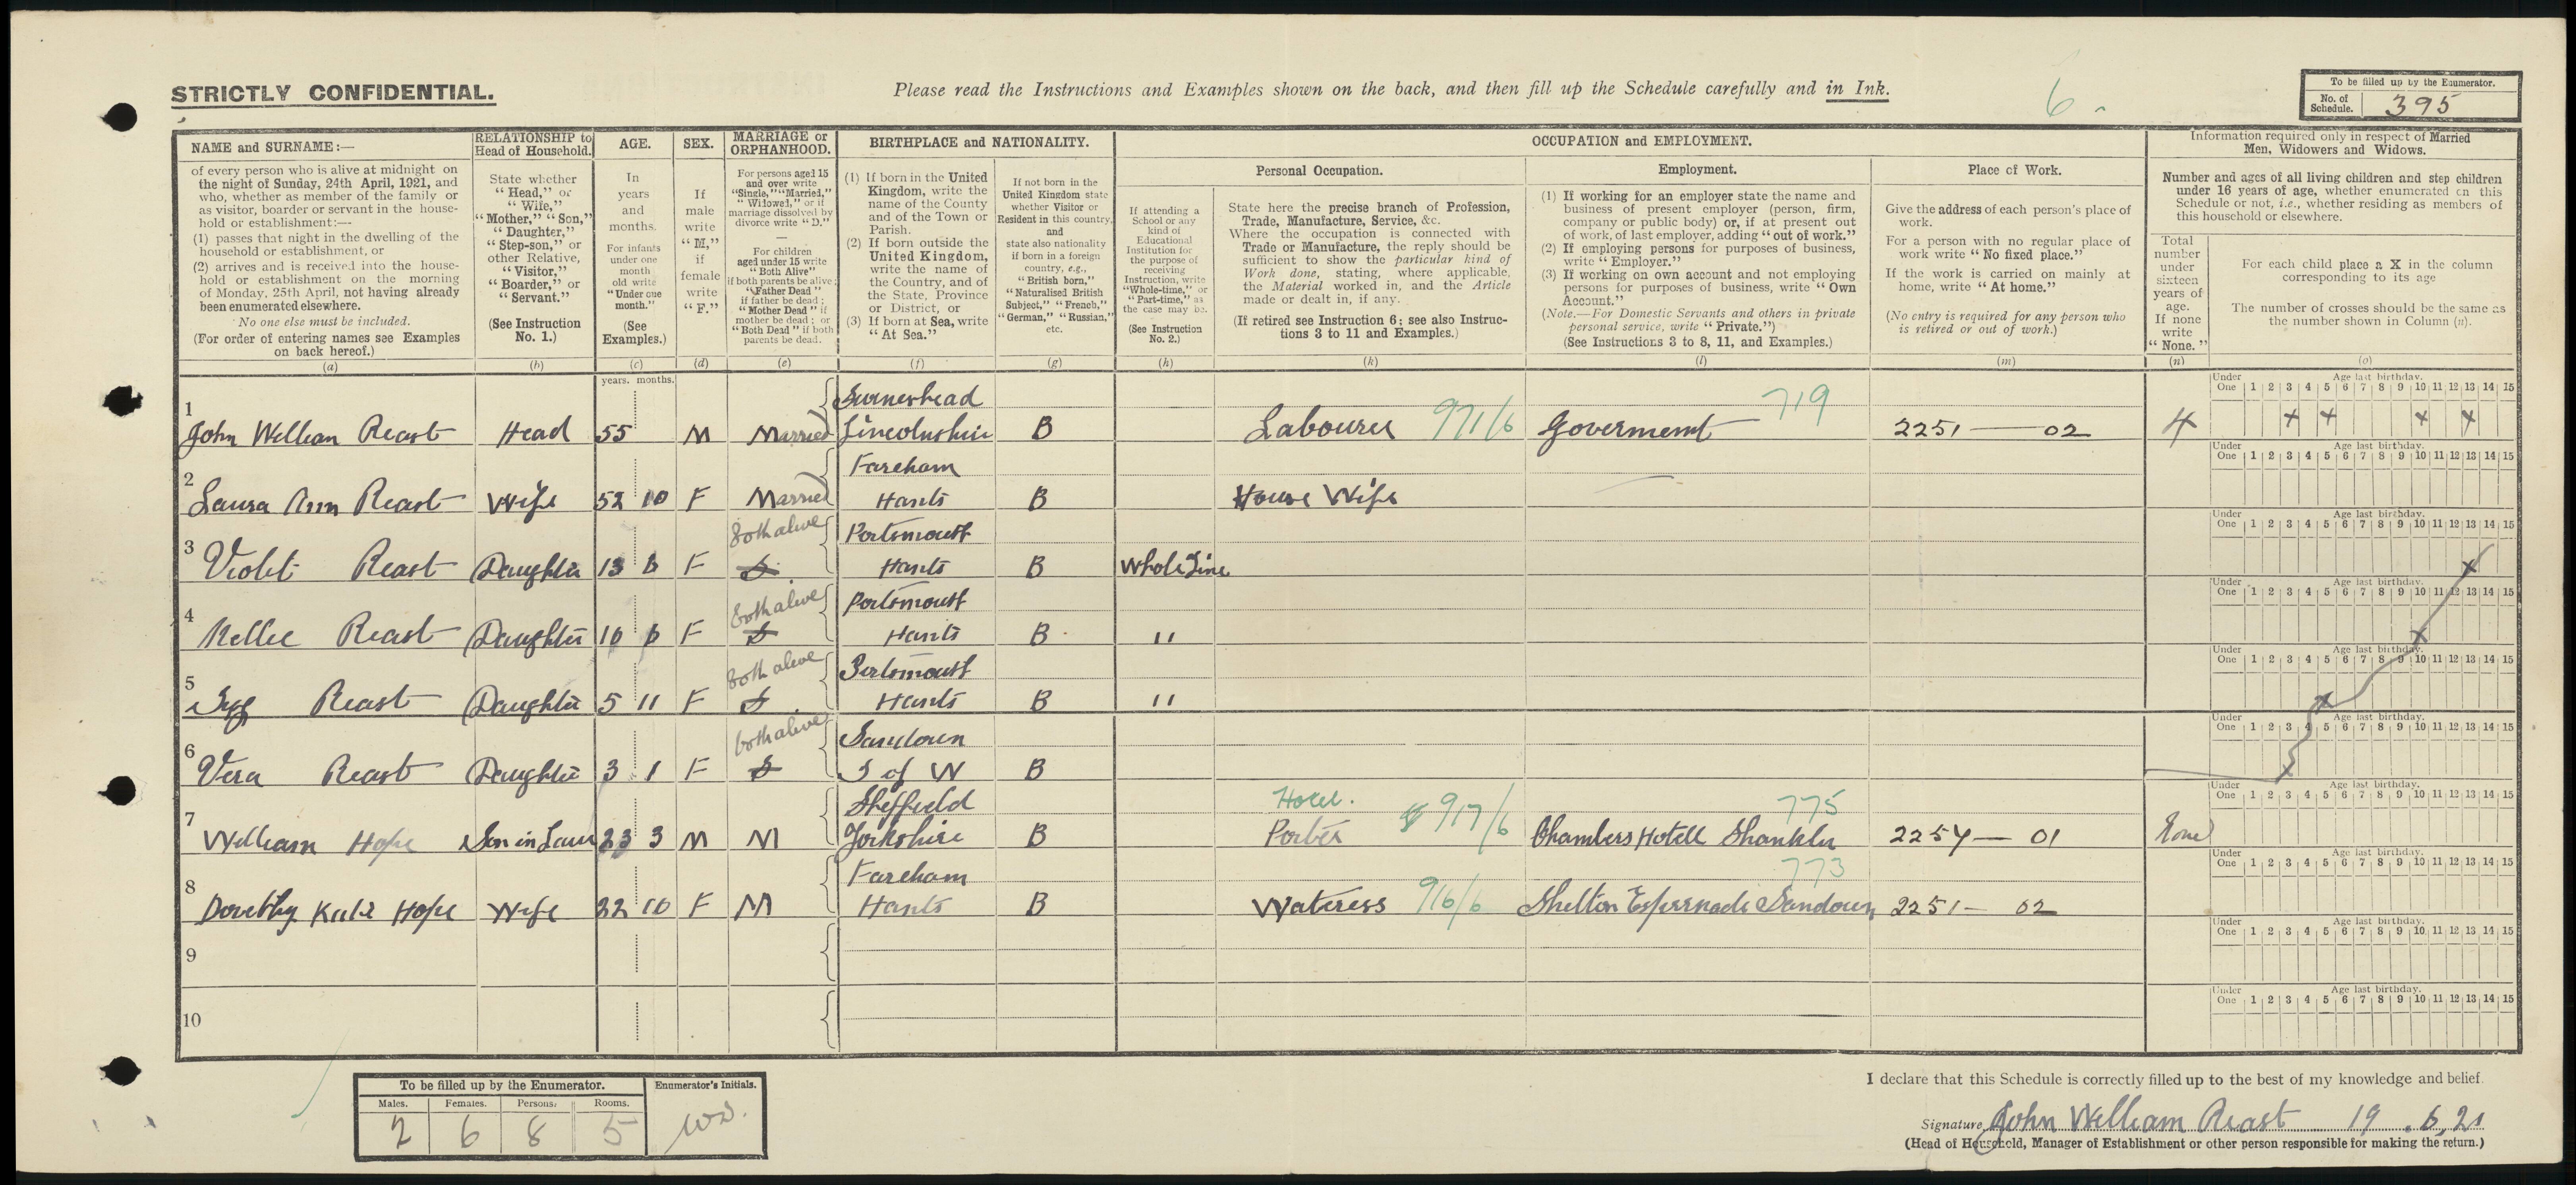 STRICTLY CONFIDENTIAL.
Please read the Instructions and Examples shown on the back, and then fill up the Schedule carefully and in Ink.
6
To be filled up by the Enumerator.
No. of Schedule. 395
NAME and SURNAME:—
of every person who is alive at midnight on
the night of Sunday, 24th April, 1921, and
who, whether as member of the family or
as visitor, boarder or servant in the house-
hold or establishment:—
(1) passes that night in the dwelling of the
household or establishment, or
(2) arrives and is received into the house-
hold or establishment on the morning
of Monday, 25th April, not having already
been enumerated elsewhere.
No one else must be included.
(For order of entering names see Examples
on back hereof.)
(a)
RELATIONSHIP to
Head of Household.
State whether
"Head," or
"Wife,"
"Mother," "Son,"
"Daughter,"
"Step-son," or
other Relative,
"Visitor,"
"Boarder," or
"Servant."
(See Instruction
No. 1.)
(b)
AGE.
In
years
and
months.
For infants
under one
month
old write
"Under one
month."
(See
Examples.)
(c)
years. months.
SEX.
If
male
write
"M,"
if
female
write
"F."
(d)
MARRIAGE or
ORPHANHOOD.
For persons aged 15
and over write
"Single," "Married,"
"Widowed," or if
marriage dissolved by
divorce write "D."
—
For children
aged under 15 write
"Both Alive"
if both parents be alive;
"Father Dead"
if father be dead;
"Mother Dead" if
mother be dead; or
"Both Dead" if both
parents be dead.
(e)
BIRTHPLACE and NATIONALITY.
(1) If born in the United
Kingdom, write the
name of the County
and of the Town or
Parish.
(2) If born outside the
United Kingdom,
write the name of
the Country, and of
the State, Province
or District, or
(3) If born at Sea, write
"At Sea."
(f)
If not born in the
United Kingdom state
whether Visitor or
Resident in this country,
and
state also nationality
if born in a foreign
country, e.g.,
"British born,"
"Naturalised British
Subject," "French,"
"German," "Russian,"
etc.
(g)
OCCUPATION and EMPLOYMENT.
If attending a
School or any
kind of
Educational
Institution for
the purpose of
receiving
Instruction, write
"Whole-time," or
"Part-time," as
the case may be.
(See Instruction
No. 2.)
(h)
Personal Occupation.
State here the precise branch of Profession,
Trade, Manufacture, Service, &c.
Where the occupation is connected with
Trade or Manufacture, the reply should be
sufficient to show the particular kind of
Work done, stating, where applicable,
the Material worked in, and the Article
made or dealt in, if any.
(If retired see Instruction 6; see also Instruc-
tions 3 to 11 and Examples.)
(k)
Employment.
(1) If working for an employer state the name and
business of present employer (person, firm,
company or public body) or, if at present out
of work, of last employer, adding "out of work."
(2) If employing persons for purposes of business,
write "Employer."
(3) If working on own account and not employing
persons for purposes of business, write "Own
Account."
(Note.—For Domestic Servants and others in private
personal service, write "Private.")
(See Instructions 3 to 8, 11, and Examples.)
(l)
Place of Work.
Give the address of each person's place of
work.
For a person with no regular place of
work write "No fixed place."
If the work is carried on mainly at
home, write "At home."
(No entry is required for any person who
is retired or out of work.)
(m)
Information required only in respect of Married
Men, Widowers and Widows.
Number and ages of all living children and step children
under 16 years of age, whether enumerated on this
Schedule or not, i.e., whether residing as members of
this household or elsewhere.
Total
number
under
sixteen
years of
age.
If none
write
"None."
(n)
For each child place a X in the column
corresponding to its age
The number of crosses should be the same as
the number shown in Column (n).
(o)
Under One 1 2 3 4 5 6 7 8 9 10 11 12 13 14 15
Age last birthday.
1 John William Reast Head 55 M Married Lincolnshire B Labourer 971/6 Goverment 719 2251 — 02 4 x x x x
Under One 1 2 3 4 5 6 7 8 9 10 11 12 13 14 15
Age last birthday.
2 Laura Ann Reast Wife 52 10 F Married Fareham Hants B House Wife
Under One 1 2 3 4 5 6 7 8 9 10 11 12 13 14 15
Age last birthday.
3 Violet Reast Daughter 13 6 F Both alive Portsmouth Hants B Whole Time x
Under One 1 2 3 4 5 6 7 8 9 10 11 12 13 14 15
Age last birthday.
4 Nellie Reast Daughter 10 6 F Both alive Portsmouth Hants B " x
Under One 1 2 3 4 5 6 7 8 9 10 11 12 13 14 15
Age last birthday.
5 Reast Daughter 5 11 F Both alive Portsmouth Hants B " x
Under One 1 2 3 4 5 6 7 8 9 10 11 12 13 14 15
Age last birthday.
6 Vera Reast Daughter 3 1 F both alive Sandown I of W B x
Under One 1 2 3 4 5 6 7 8 9 10 11 12 13 14 15
Age last birthday.
7 William Hope Son in Law 23 3 M M Sheffield Yorkshire B Hotel. Porter 917/6 Chambers Hotell Shanklin 775 2254 — 01 None
Under One 1 2 3 4 5 6 7 8 9 10 11 12 13 14 15
Age last birthday.
8 Dorothy Kate Hope Wife 22 10 F M Fareham Hants B Wateress 916/6 Shelton Espernade Sandown 773 2251 — 02
Under One 1 2 3 4 5 6 7 8 9 10 11 12 13 14 15
Age last birthday.
9
Under One 1 2 3 4 5 6 7 8 9 10 11 12 13 14 15
Age last birthday.
10
To be filled up by the Enumerator.
Males. Females. Persons. Rooms.
2 6 8 5
Enumerator's Initials.
I declare that this Schedule is correctly filled up to the best of my knowledge and belief.
Signature John William Reast 19.6.21
(Head of Household, Manager of Establishment or other person responsible for making the return.)